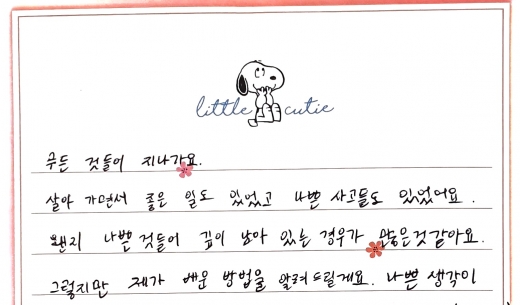 little cutie
무든 것들이 지나가요.
살아 가면서 좋은 일도 있었고 나쁜 사고들도 있었어요.
왠지 나쁜것들이 깊이 남아 있는 경우가 많은것같아요.
그렇지만 제가 배운 방법을 알려드릴게요. 나쁜 생각이